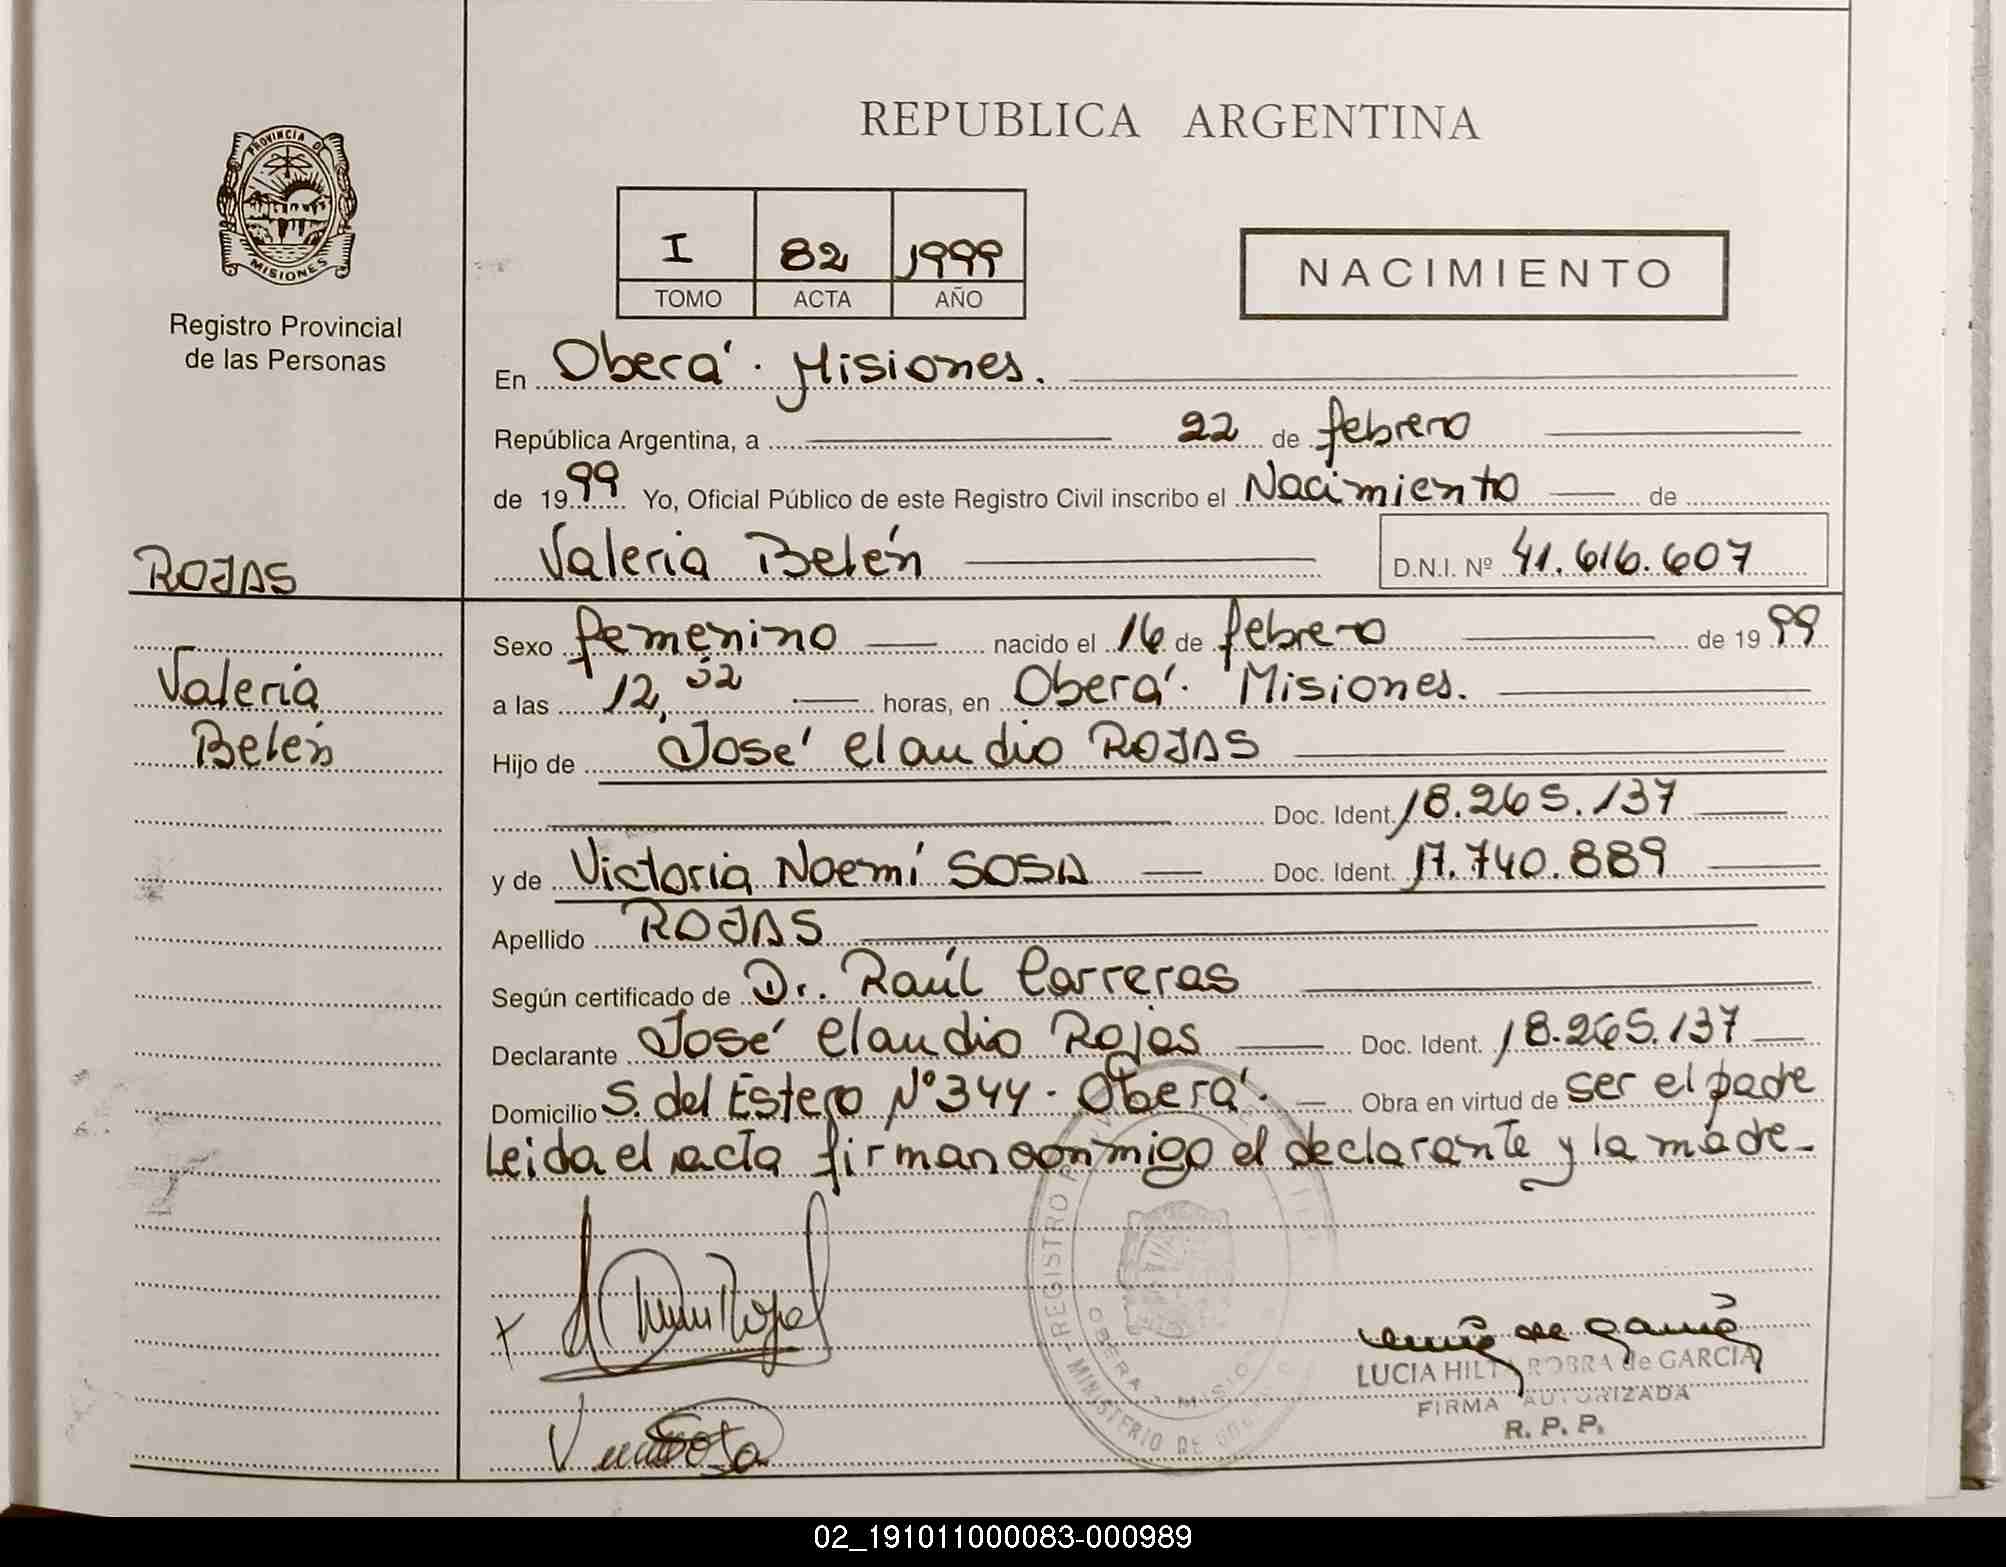 REPUBLICA ARGENTINA
PROVINCIA DE
MISIONES
Registro Provincial
de las Personas
I 82 1999
TOMO ACTA AÑO
NACIMIENTO
En Oberá. Misiones.
República Argentina, a 22 de febrero
de 1999 Yo, Oficial Público de este Registro Civil inscribo el Nacimiento de
Valeria Belén D.N.I. Nº 41.616.607
ROJAS
Valeria
Belén
Sexo femenino nacido el 16 de febrero de 1999
a las 12,32 horas, en Oberá. Misiones.
Hijo de José Claudio ROJAS
Doc. Ident. 18.265.137
y de Victoria Noemí SOSA Doc. Ident. 17.740.889
Apellido ROJAS
Según certificado de Dr. Raúl Carreras
Declarante José Claudio Rojas Doc. Ident. 18.265.137
Domicilio S. del Estero Nº 344. Oberá. Obra en virtud de ser el padre
Leida el acta firman conmigo el declarante y la madre-
REGISTRO
MINISTERIO DE
OBERA
de Garcia
LUCIA ROBRA de GARCIA
FIRMA AUTORIZADA
R. P. P.
02_191011000083-000989